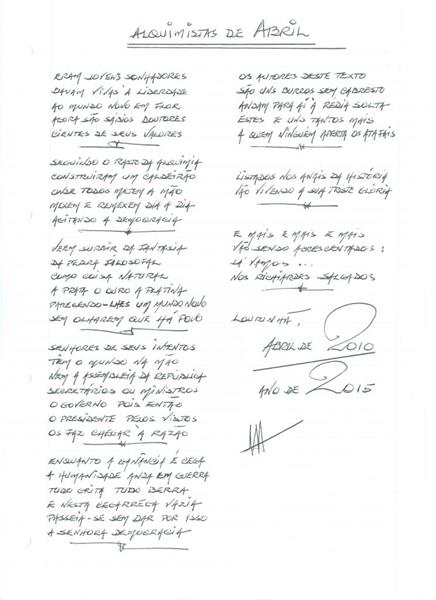 ALQUIMISTAS DE ABRIL
ERAM JOVENS SONHADORES
DAVAM VIVAS À LIBERDADE
AO MUNDO NOVO EM FLOR
AGORA SÃO SÁBIOS DOUTORES
CIENTES DE SEUS VALORES
SEGUINDO O RASTO DA ALQUIMIA
CONSTRUIRAM UM CALDEIRÃO
ONDE TODOS METEM A MÃO
MEXEM E REMEXEM DIA A DIA
AGITANDO A DEMOCRACIA
VEM SURGIR DA FANTASIA
DA PEDRA FILOSOFAL
COMO COISA NATURAL
A PRATA O OURO A PLATINA
PARECENDO-LHES UM MUNDO NOVO
SEM OLHAREM QUE HÁ POVO
SENHORES DE SEUS INTENTOS
TÊM O MUNDO NA MÃO
NEM A ASSEMBLEIA DA REPÚBLICA
SECRETÁRIOS OU MINISTROS
O GOVERNO POIS ENTÃO
O PRESIDENTE PELOS VISTOS
OS FAZ CHEGAR À RAZÃO
ENQUANTO A GANÂNCIA É CEGA
A HUMANIDADE ANDA EM GUERRA
TUDO GRITA TUDO BERRA
E NESTA CEGARREGA VAZIA
PASSEIA-SE SEM DAR POR ISSO
A SENHORA DEMOCRACIA
OS AUTORES DESTE TEXTO
SÃO UNS BURROS SEM CABRESTO
ANDAM PARA AÍ À RÉDIA SOLTA
ESTES E UNS TANTOS MAIS
A QUEM NINGUÉM APERTA OS ATAFAIS
LISTADOS NOS ANAIS DA HISTÓRIA
VÃO VIVENDO A SUA TRISTE GLÓRIA
E MAIS E MAIS E MAIS
VÃO SENDO ACRESCENTADOS:
LÁ VAMOS...
NOS RICHIARDES SALGADOS
LOURINHÃ,
ABRIL DE 2010
ANO DE 2015